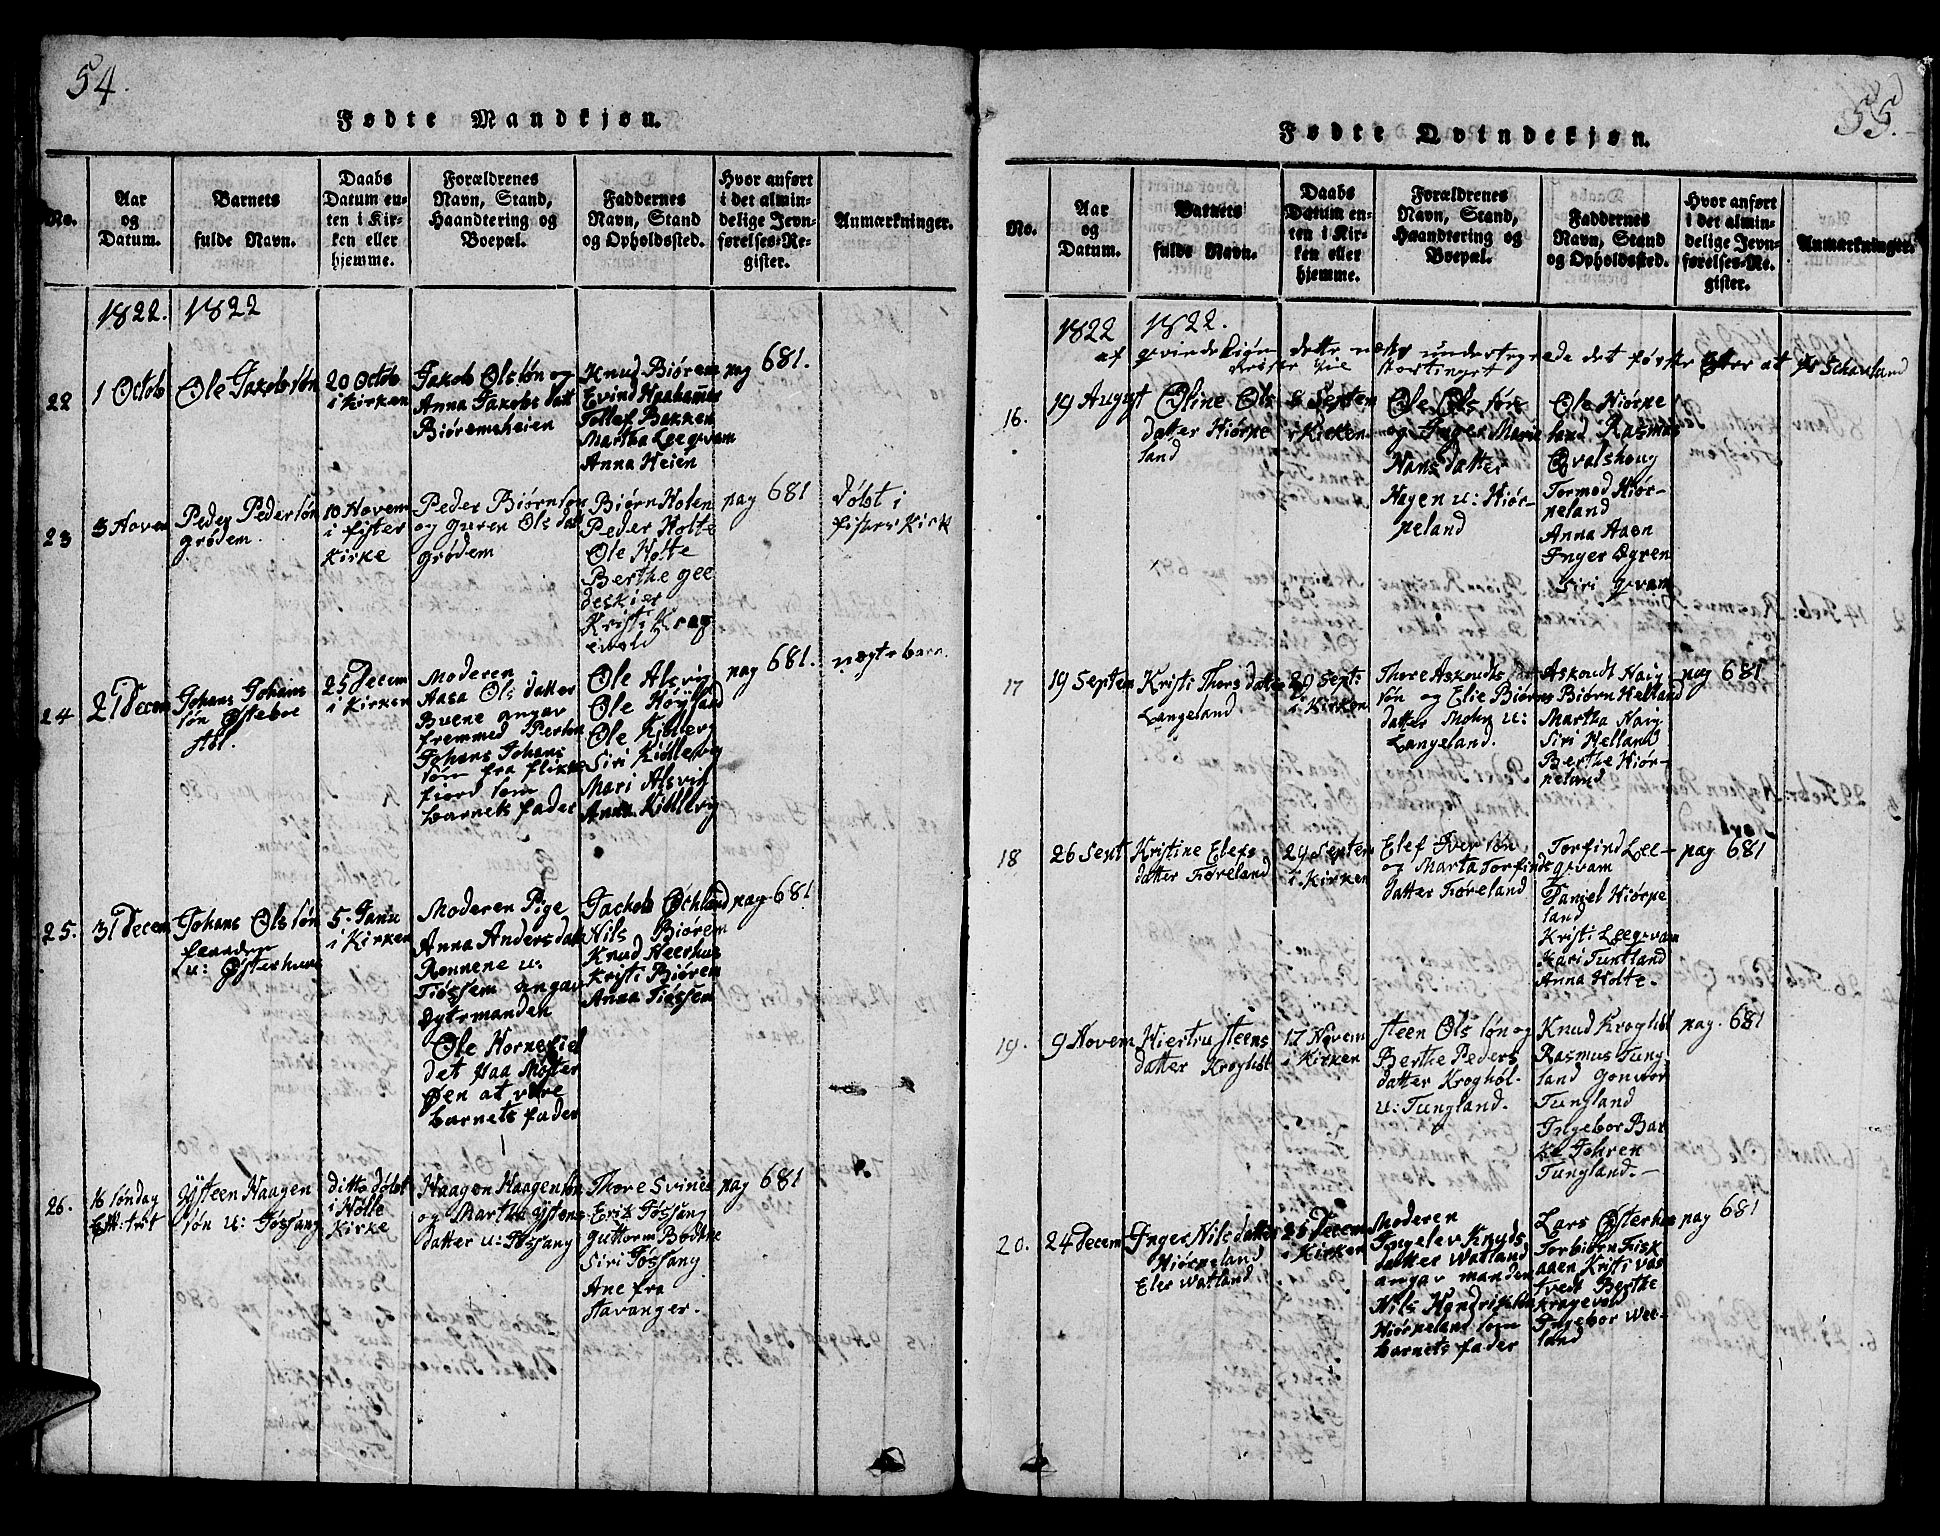 54.
Fødte Mandkjøn.
No.
Aar
og
Datum.
Barnets
fulde Navn.
Daabs
Datum en-
ten i Kir-
ken eller
hjemme.
Forældrenes
Navn, Stand,
Haandtering og
Boepæl.
Faddernes
Navn, Stand
og Opholdssted.
Hvor anført
i det almin-
delige Jevn-
førelses-Re-
gister.
Anmærkninger.
1822. 1822
22
1 Octob
Ole Jakobsøn
20 Octob
i Kirken
Jakob Olsøn og
Anna Jakobs datt
Biøremsheien
Knud Biørem
Evind
Tollef Bakken
Martha Leeqvam
Anna Heien
pag 681.
23
3 Novem
Peder Pedersøn
grødem
10 Novem
i fister
Kirke
Peder Biørnsøn
og guren Ols dat
grødem
Biørn Holen
Peder Holte
Ole Holte
Berthe gee
deskier
Kristi Krag
evold
pag 681
døbt i
fister Kirk
24
21 Decem
Johans Johans
søn Østeboe
støl.
25 Decem
i Kirken
Moderen
Aasa Ols datter
Buene angav
fremmed Person
Johans Johans
søn fra flikke
fiord som
barnets fader
Ole Alsvig
Ole Høyland
Ole Kidlesvig
Siri Kidlesvig
Mari Alsvig
Anna Kidlesvig
pag 681.
uægte barn.
25.
31 Decem
Johans Olssøn
u: Østerhuus
5. Janu
i Kirken
Moderen Pige
Anna Anders datt
Rønnene u:
Tiøssem angav
Dytrmanden
Ole Hornefiel
det paa Moster
Øen at være
barnets fader
Jackob Østhland
Nils Biørem
Knud Heerhus
Kristi Biørem
Anna Tiøssem
pag 681
26.
16 søndag
Eft: trit
Ysteen Haagen
søn u: Fossang
ditto døbt
i Holle
Kirke
Haagen Haagensøn
og Martha Ystens
datter u: Fossang
Thore Svines
Erik Fossang
guttorm Bødkne
Siri Fossang
Ane fra
Stavanger.
pag 681
55.
Fødte Qvindekjøn.
No.
Aar
og
Datum.
Barnets
fulde Navn.
Daabs
Datum en-
ten i Kir-
ken eller
hjemme.
Forældrenes
Navn, Stand,
Haandtering og
Boepæl.
Faddernes
Navn, Stand
og Opholdssted.
Hvor anført
i det almin-
delige Jevn-
førelses-Re-
gister.
Anmærkninger.
1822 1822.
af qvindekiøn dette næst undertegnede det første efter at Hr Schanland
reiste til Stortinget
16.
19 Augugt
Oline Ols
datter Hiørpe
land
8 Septem
i Kirken
Ole Ols søn
og Inger Marie
Hans datter
Hagen u: Hiør-
peland
Ole Hiørpe
land Rasmus
Qvalshoug
Tormod Hiør-
peland
Anna Aaen
Inger Øgren
Siri Qvam
17
19 Septem
Kristi Thors datter
Langeland
29 Septi
i Kirken
Thore Askoudts
søn og Elie Biørns
datter Mohn u:
Langeland.
Askoudt Haig
Biørn Helland
Martha Haig
Siri Helland
Berthe Hiør-
peland
pag 681
18
26 Sept
Kristine Elefs
datter Tøreland
29 Septem
i Kirken
Elef Iver søn
og Marta Torfinds
datter Tøreland
Torfind Lee-
qvam
Daniel Hiørpe
land
Kristi Leeqvam
Kari Tuntland
Anna Holte.
pag 681
19.
9 Novem
Hiertru steens
datter Kroghøl
17 Novem
i Kirken
steen Ols søn og
Berthe Peders
datter Kroghøl-
u: Tungland.
Knud Kroghøl
Rasmus Tung-
land gonvor
Tungland
Ingebor Bar
ke Johren
Tungland.
pag. 681
20.
24 decem
Inger Nils datter
Hiørpeland
Eler Watland
26 Decem
i Kirken
Moderen
Ingelev Knuds
datter Watland
angav manden
Nils Hendriksøn
Hiørpeland som
barnets fader
Lars Østerhus
Torbiørn Fisk
aaen Kristi Vas
tvedt Berthe
Kragevol
Ingebor Wee-
land
pag 681